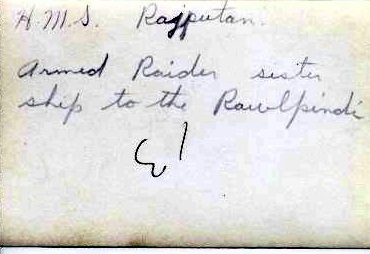 H.M.S. Rajputan.
Armed Raider sister
ship to the Rawlpindi